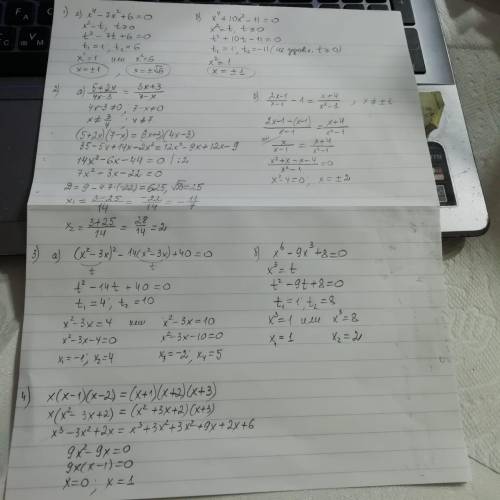 1) а) x⁴-7x²+6=0
x²=t, t≥0
t²-7t+6=0
t₁=1, t₂=6
x²=1 или x²=6
x=±1, x=±√6
б) x⁴+10x²-11=0
x²=t, t≥0
t²+10t-11=0
t₁=1, t₂=-11 (не удовл. t≥0)
x²=1
x=±1
2) а) (5+2x)/(4x-3) = (3x+3)/(7-x)
4x-3≠0, 7-x≠0
x≠3/4, x≠7
(5+2x)(7-x)=(3x+3)(4x-3)
35-5x+14x-2x²=12x²-9x+12x-9
14x²-6x-44=0 |:2
7x²-3x-22=0
D=9-4·7·(-22)=625, √D=25
x₁=(3-25)/14=-22/14=-11/7
x₂=(3+25)/14=28/14=2
б) (2x-1)/(x-1) - 1 = (x+4)/(x²-1), x≠±1
(2x-1-(x-1))/(x-1) = (x+4)/(x²-1)
x/(x-1) = (x+4)/(x²-1)
(x²+x-x-4)/(x²-1)=0
x²-4=0, x=±2
3) а) (x²-3x)²-14(x²-3x)+40=0
t t
t²-14t+40=0
t₁=4, t₂=10
x²-3x=4 или x²-3x=10
x²-3x-4=0 x²-3x-10=0
x₁=-1, x₂=4 x₃=-2, x₄=5
б) x⁶-9x³+8=0
x³=t
t²-9t+8=0
t₁=1, t₂=8
x³=1 или x³=8
x₁=1 x₂=2
4) x(x-1)(x-2)=(x+1)(x+2)(x+3)
x(x²-3x+2)=(x²+3x+2)(x+3)
x³-3x²+2x=x³+3x²+3x²+9x+2x+6
9x²-9x=0
9x(x-1)=0
x=0; x=1